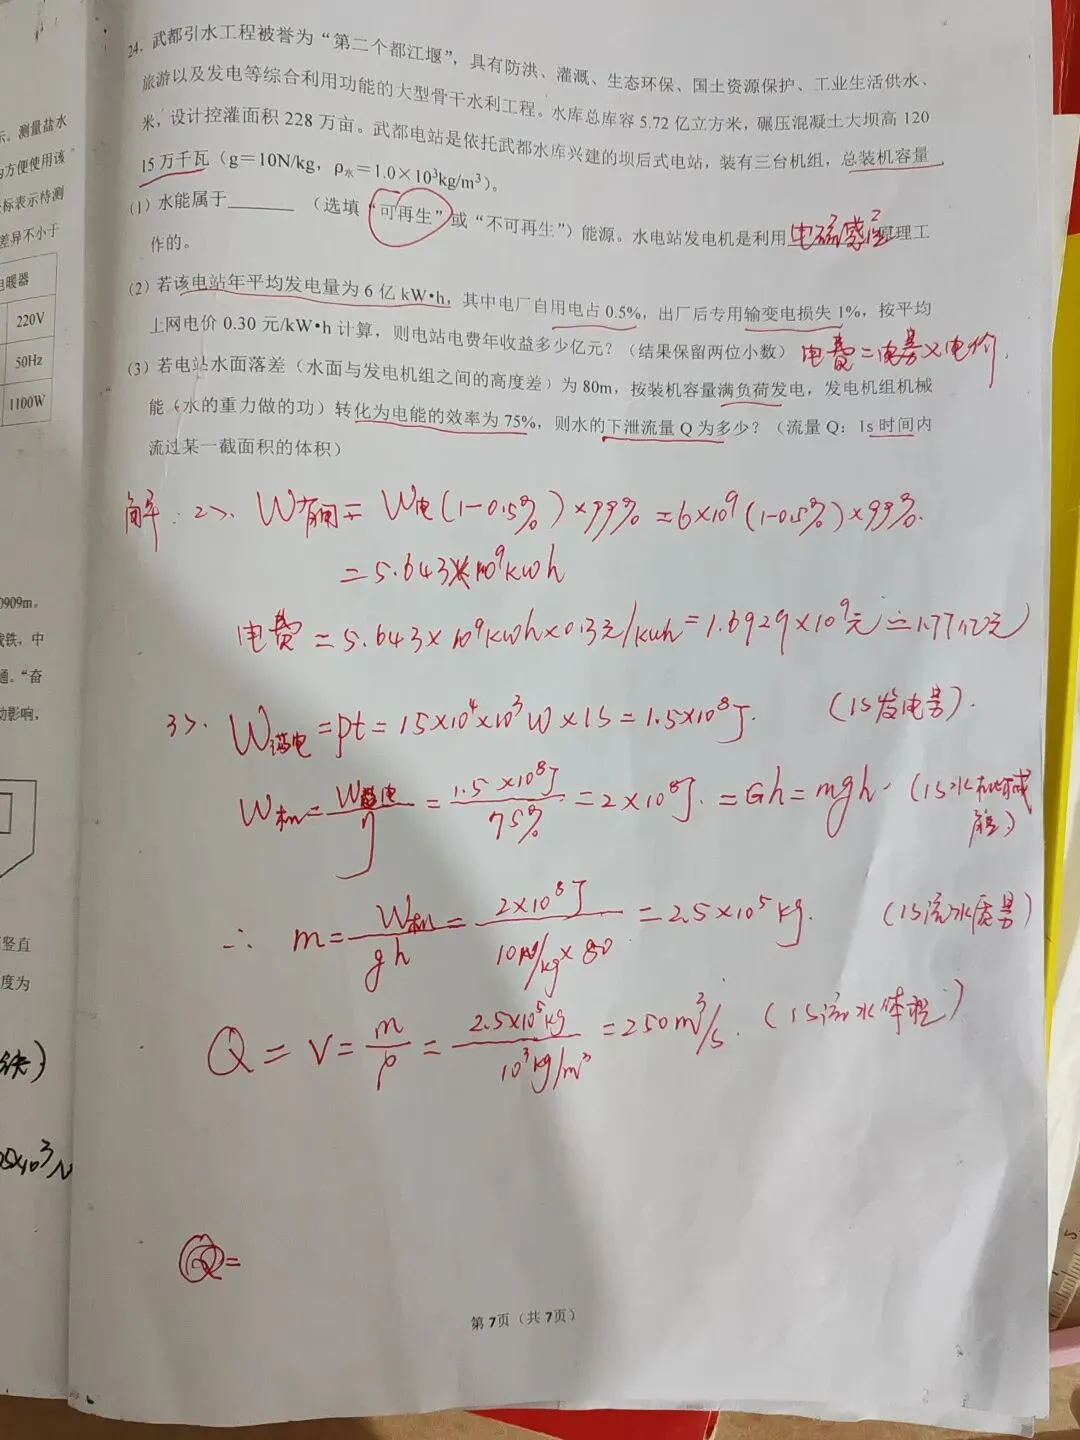 24. 武都引水工程被誉为“第二个都江堰”，具有防洪、灌溉、生态环保、国土资源保护、工业生活供水、
旅游以及发电等综合利用功能的大型骨干水利工程。水库总库容 5.72 亿立方米，碾压混凝土大坝高 120
米，设计控灌面积 228 万亩。武都电站是依托武都水库兴建的坝后式电站，装有三台机组，总装机容量
15 万千瓦（g＝10N/kg，ρ水＝1.0×10³kg/m³）。
(1) 水能属于______（选填“可再生”或“不可再生”）能源。水电站发电机是利用电磁感应原理工
作的。
(2) 若该电站年平均发电量为 6 亿 kW•h，其中电厂自用电占 0.5%，出厂后专用输变电损失 1%，按平均
上网电价 0.30 元/kW•h 计算，则电站电费年收益多少亿元？（结果保留两位小数） 电费=电量×电价.
(3) 若电站水面落差（水面与发电机组之间的高度差）为 80m，按装机容量满负荷发电，发电机组机械
能（水的重力做的功）转化为电能的效率为 75%，则水的下泄流量 Q 为多少？（流量 Q：1s 时间内
流过某一截面积的体积）
解：2>. W有用= W电(1-0.5%)×99% =6×10⁹(1-0.5%)×99%.
=5.643×10⁹kwh
电费=5.643×10⁹kwh×0.3元/kwh=1.6929×10⁹元≐1.77亿元
3>. W电=pt=15×10⁴×10³W×1s=1.5×10⁸J. (1s发电量).
W机=W电/η=1.5×10⁸J/75%=2×10⁸J.=Gh=mgh. (1s水机械能)
∴ m=W机/gh=2×10⁸J/10N/kg×80=2.5×10⁵kg. (1s流水质量)
Q=V=m/ρ=2.5×10⁵kg/10³kg/m³=250m³/s. (1s流水体积)
Q=
第 7页（共 7页）
示，测量盐水
为方便使用该
坐标表示待测
差异不小于
电暖器
220V
50Hz
1100W
0909m。
线铁，中
通。“奋
动影响，
竖直
度为
5×10³N